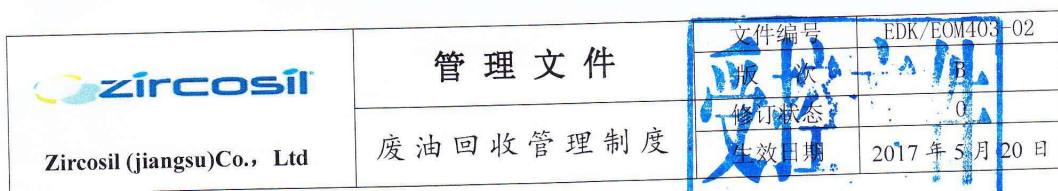 zircosil
Zircosil (jiangsu)Co.，Ltd
管理文件
废油回收管理制度
文件编号 EDK/EOM403-02
版次 B
修订状态 0
生效日期 2017年5月20日
受控文件